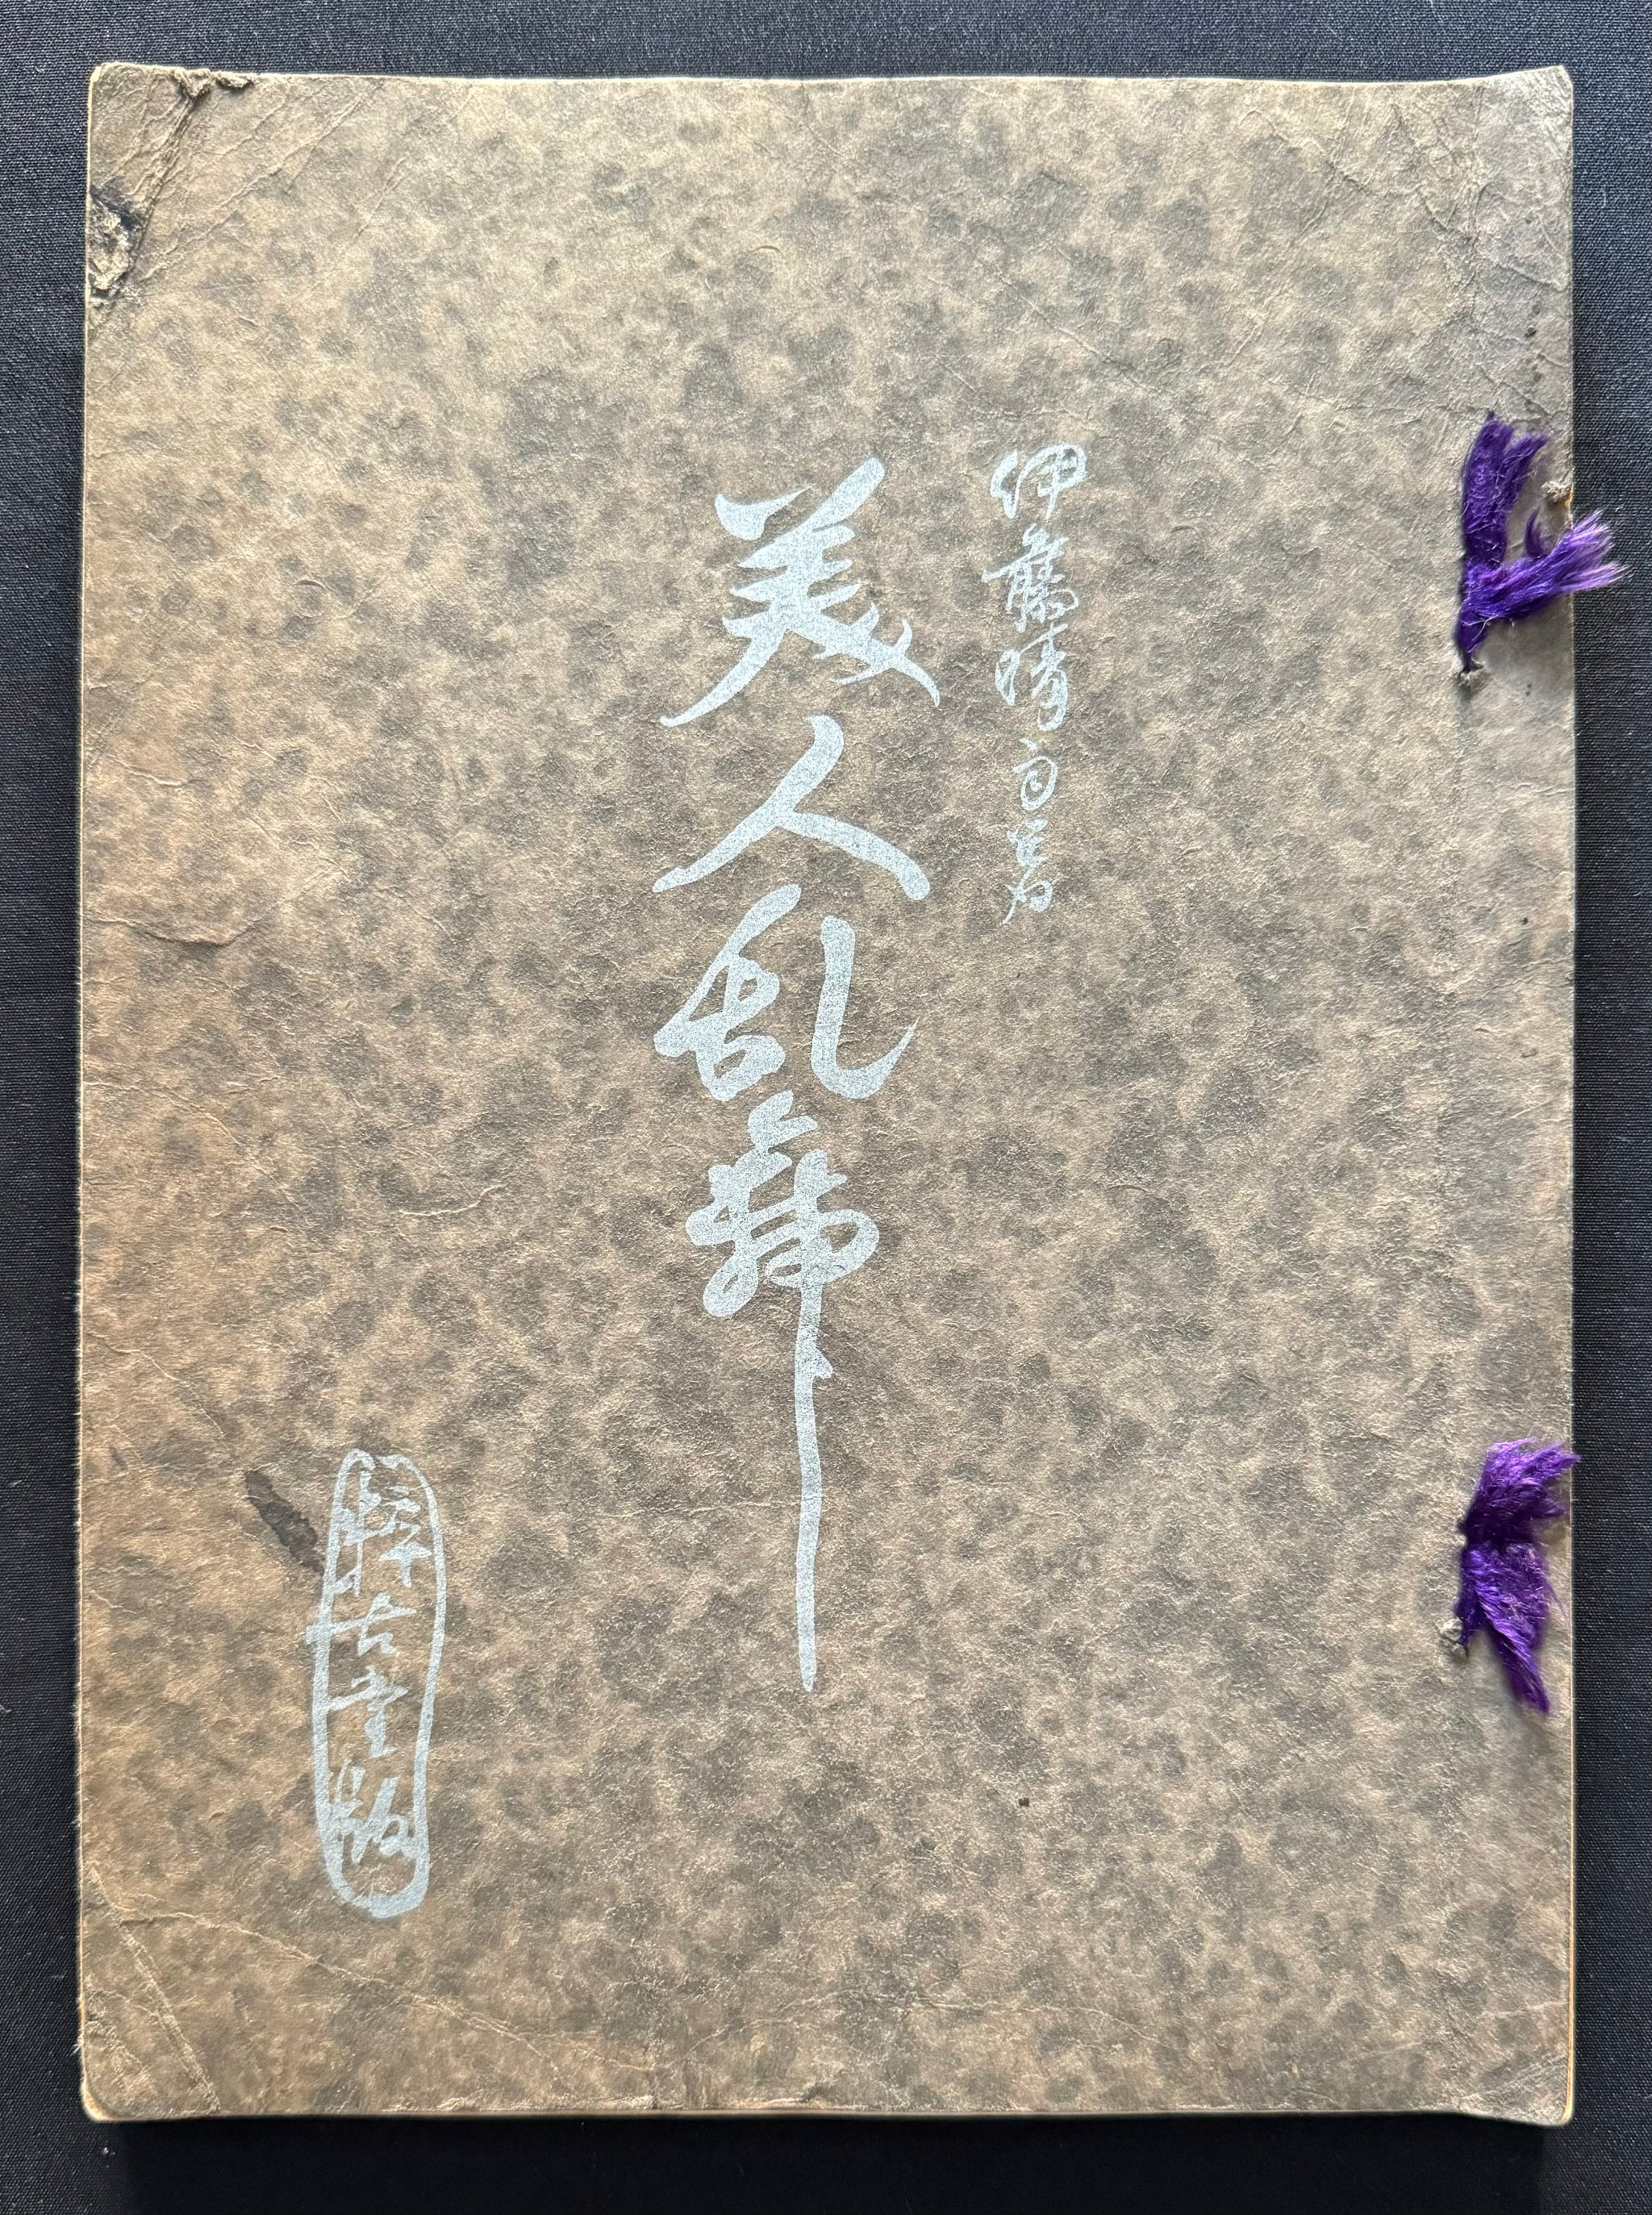 伊藤晴雨
美人乱舞
粹古堂版